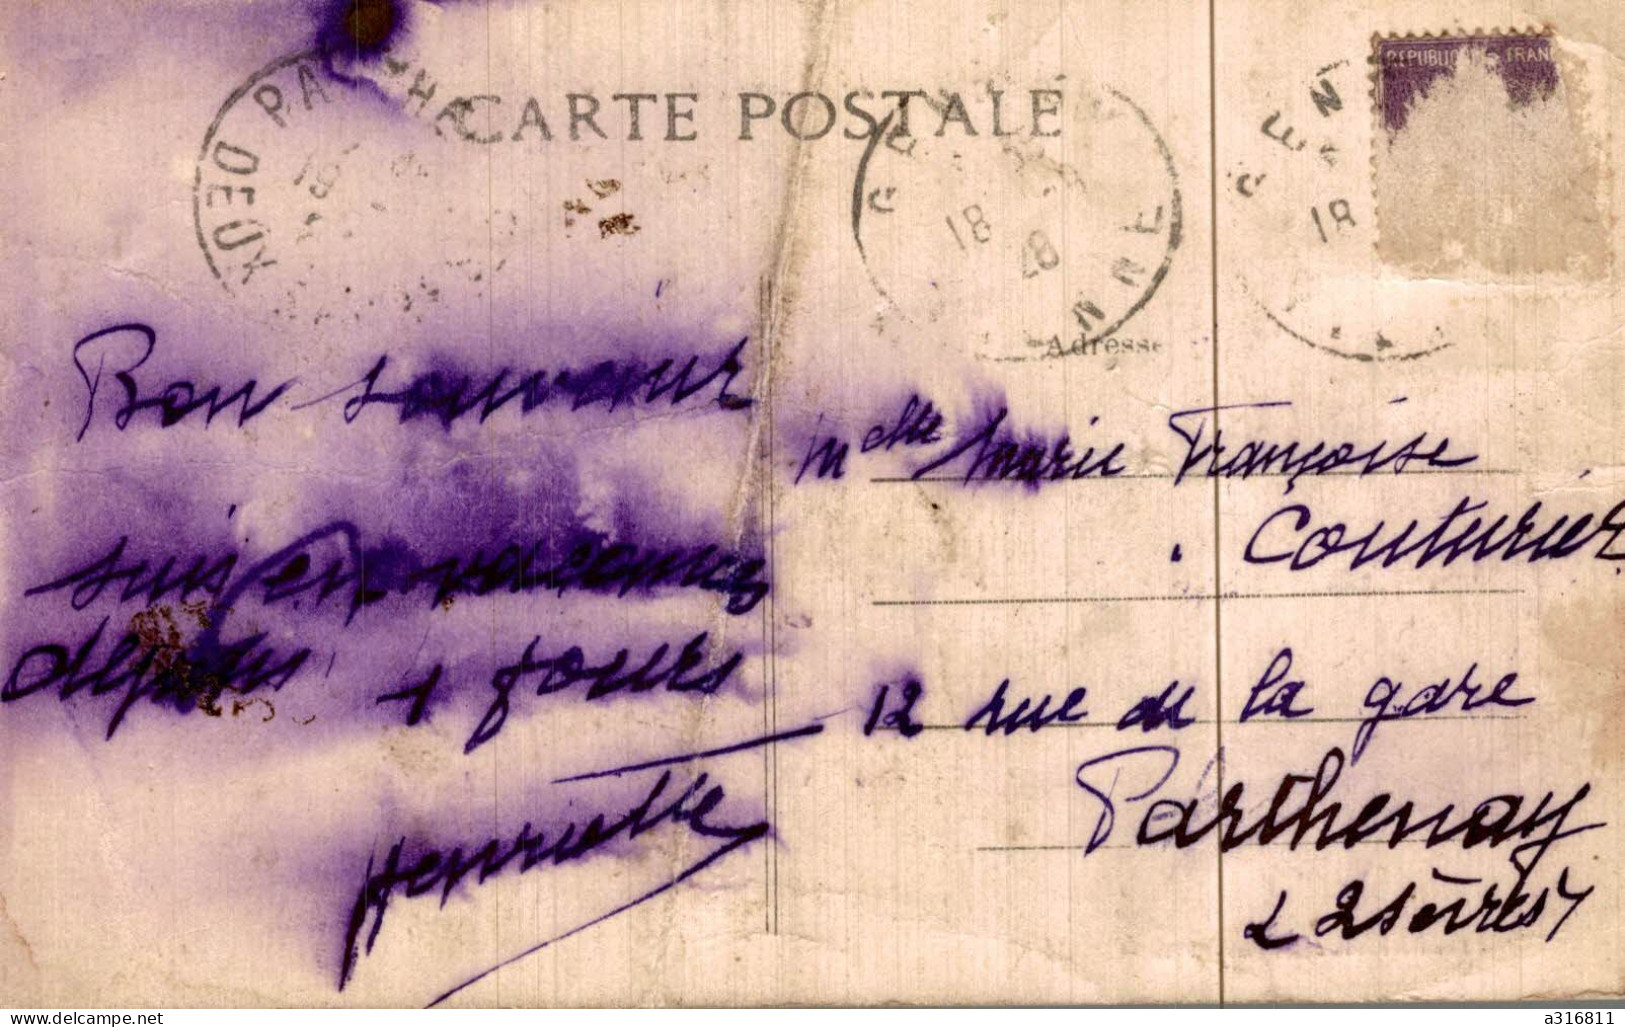 CARTE POSTALE
DEUX
18
28
18
REPUBLIQUE FRAN
Adresse
Bon souvenir
suis en vacances
depuis 4 jours
Henriette
Melle Marie Françoise
Couturier
12 rue de la gare
Parthenay
2 Sèvres
www.delcampe.net
a316811